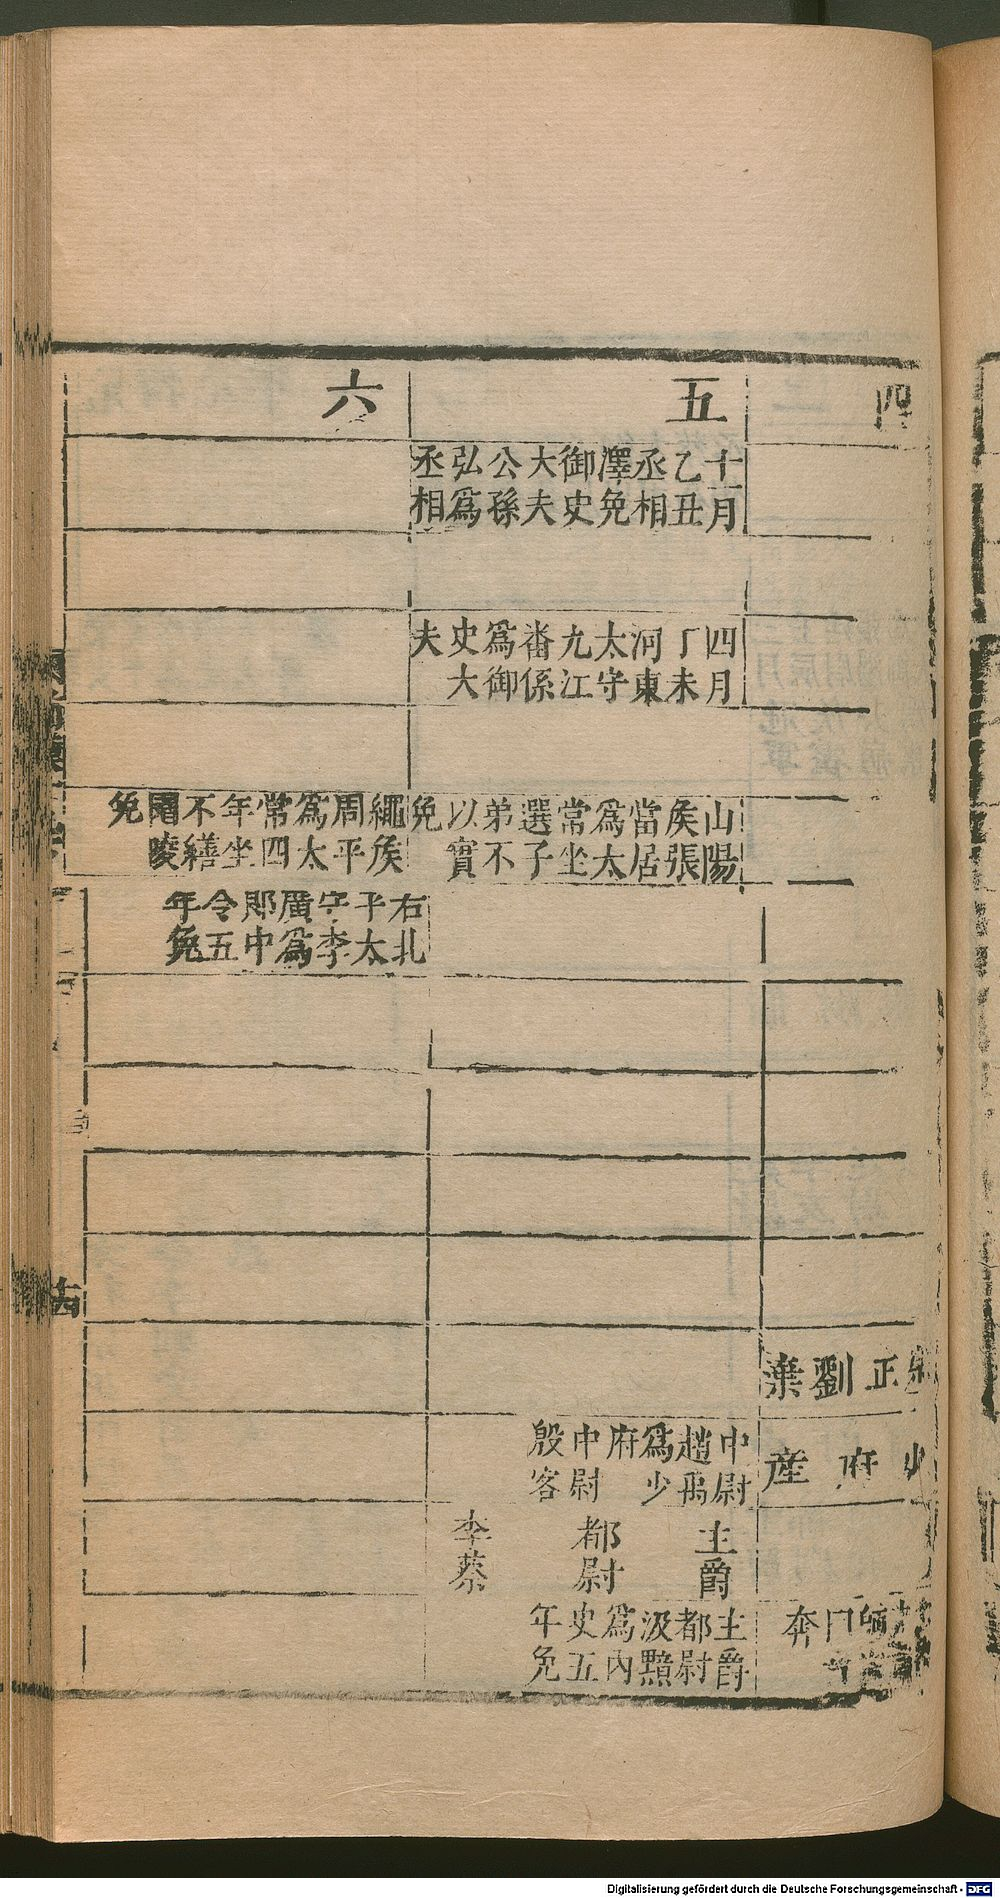 四
正劉棄
少府產
五
十月乙丑丞相澤免御史大夫公孫弘爲丞相
四月丁未河東太守九江番係爲御史大夫
山陽侯張當居爲太常坐選子弟不以實免
中尉趙禹爲少府中尉殷客
主爵都尉李蔡
主爵都尉汲黯爲內史五年免
六
繩侯周平爲太常四年坐不繕園陵免
右北平太守李廣爲郎中令五年免
十四
Digitalisierung gefördert durch die Deutsche Forschungsgemeinschaft - DFG